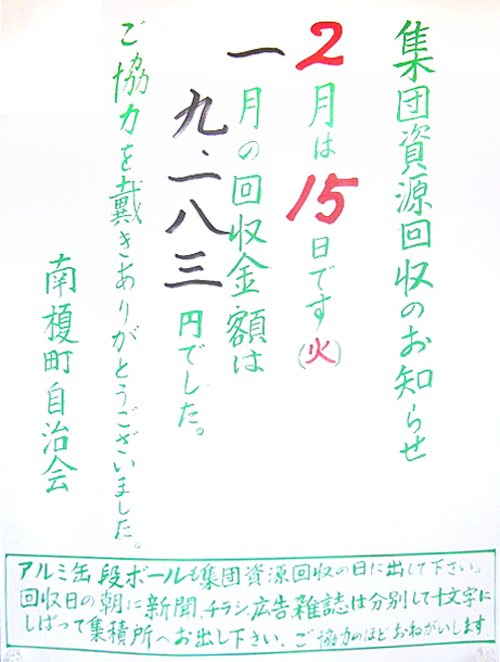 集団資源回収のお知らせ
2月は15日です(火)
一月の回収金額は
九、二八三円でした。
ご協力を戴きありがとうございました。
南榎町自治会
アルミ缶段ボールも集団資源回収の日に出して下さい。
回収日の朝に新聞、チラシ、広告、雑誌は分別して十文字に
しばって集積所へお出し下さい。ご協力のほどおねがいします